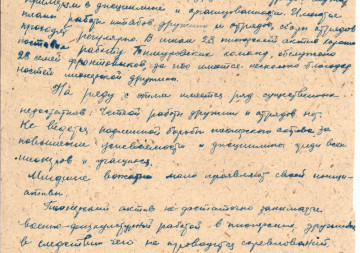 примером в дисциплине и организованности. Имеются
планы работы штабов дружины и отрядов, сборы отрядов
проводят регулярно. В школе 23 пионерский актив хорошо
поставил работу Тимуровских команд, обслуживает
28 семей фронтовиков за что имеются несколько благодар
ностей пионерской дружине.
На ряду с этим имеется ряд существенных
недостатков: Четкой работы дружин и отрядов нет.
Не ведется надлежащей борьбы пионерского актива за
повышение успеваемости и дисциплины среди всех
пионеров и учащихся.
Многие вожатые мало проявляют своей иници-
ативы.
Пионерский актив не достаточно занимается
военно-физкультурной работой в пионерских дружинах
в следствии чего не проводятся соревнований